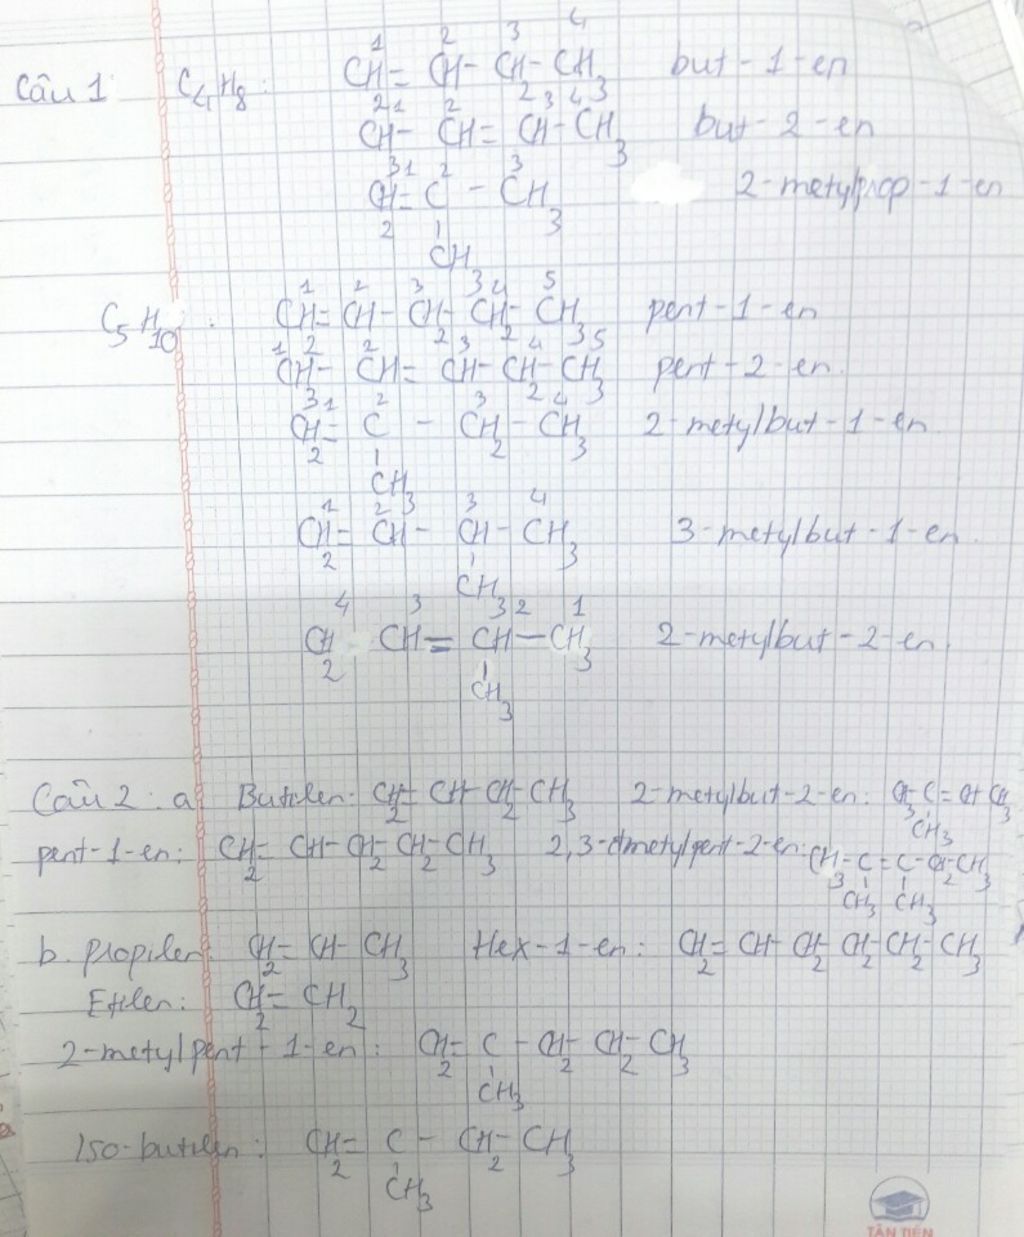 Câu 1: C4H8: CH2=CH-CH2-CH3 but-1-en
1 2 3 4
CH3-CH=CH-CH3 but-2-en
1 2 3 4
CH2=C-CH3 2-metylprop-1-en
1 2 3
CH3
C5H10: CH2=CH-CH2-CH2-CH3 pent-1-en
1 2 3 4 5
CH3-CH=CH-CH2-CH3 pent-2-en.
1 2 3 4 5
CH2=C-CH2-CH3 2-metylbut-1-en.
1 2 3 4
CH3
CH2=CH-CH-CH3 3-metylbut-1-en.
1 2 3 4
CH3
4 3 2 1
CH2 CH=CH-CH3 2-metylbut-2-en.
CH3
Câu 2: a Butilen: CH2=CH-CH2-CH3 2-metylbut-2-en: CH3-C=CH-CH3
CH3
pent-1-en: CH2=CH-CH2-CH2-CH3 2,3-dmetylpent-2-en: CH3-C=C-CH2-CH3
CH3 CH3
b. propilen: CH2=CH-CH3 Hex-1-en: CH2=CH-CH2-CH2-CH2-CH3
Etilen: CH2=CH2
2-metylpent-1-en: CH2=C-CH2-CH2-CH3
CH3
Iso-butilen: CH2=C-CH2-CH3
CH3
TÂN TIẾN